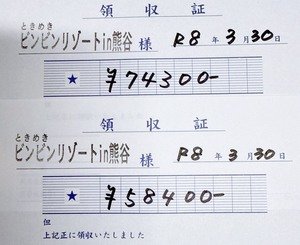 領収証
ときめき
ピンピンリゾートin熊谷 様 R8年3月30日
★ ¥74300-
領収証
ときめき
ピンピンリゾートin熊谷 様 R8年3月30日
★ ¥58400-
但
上記正に領収いたしました